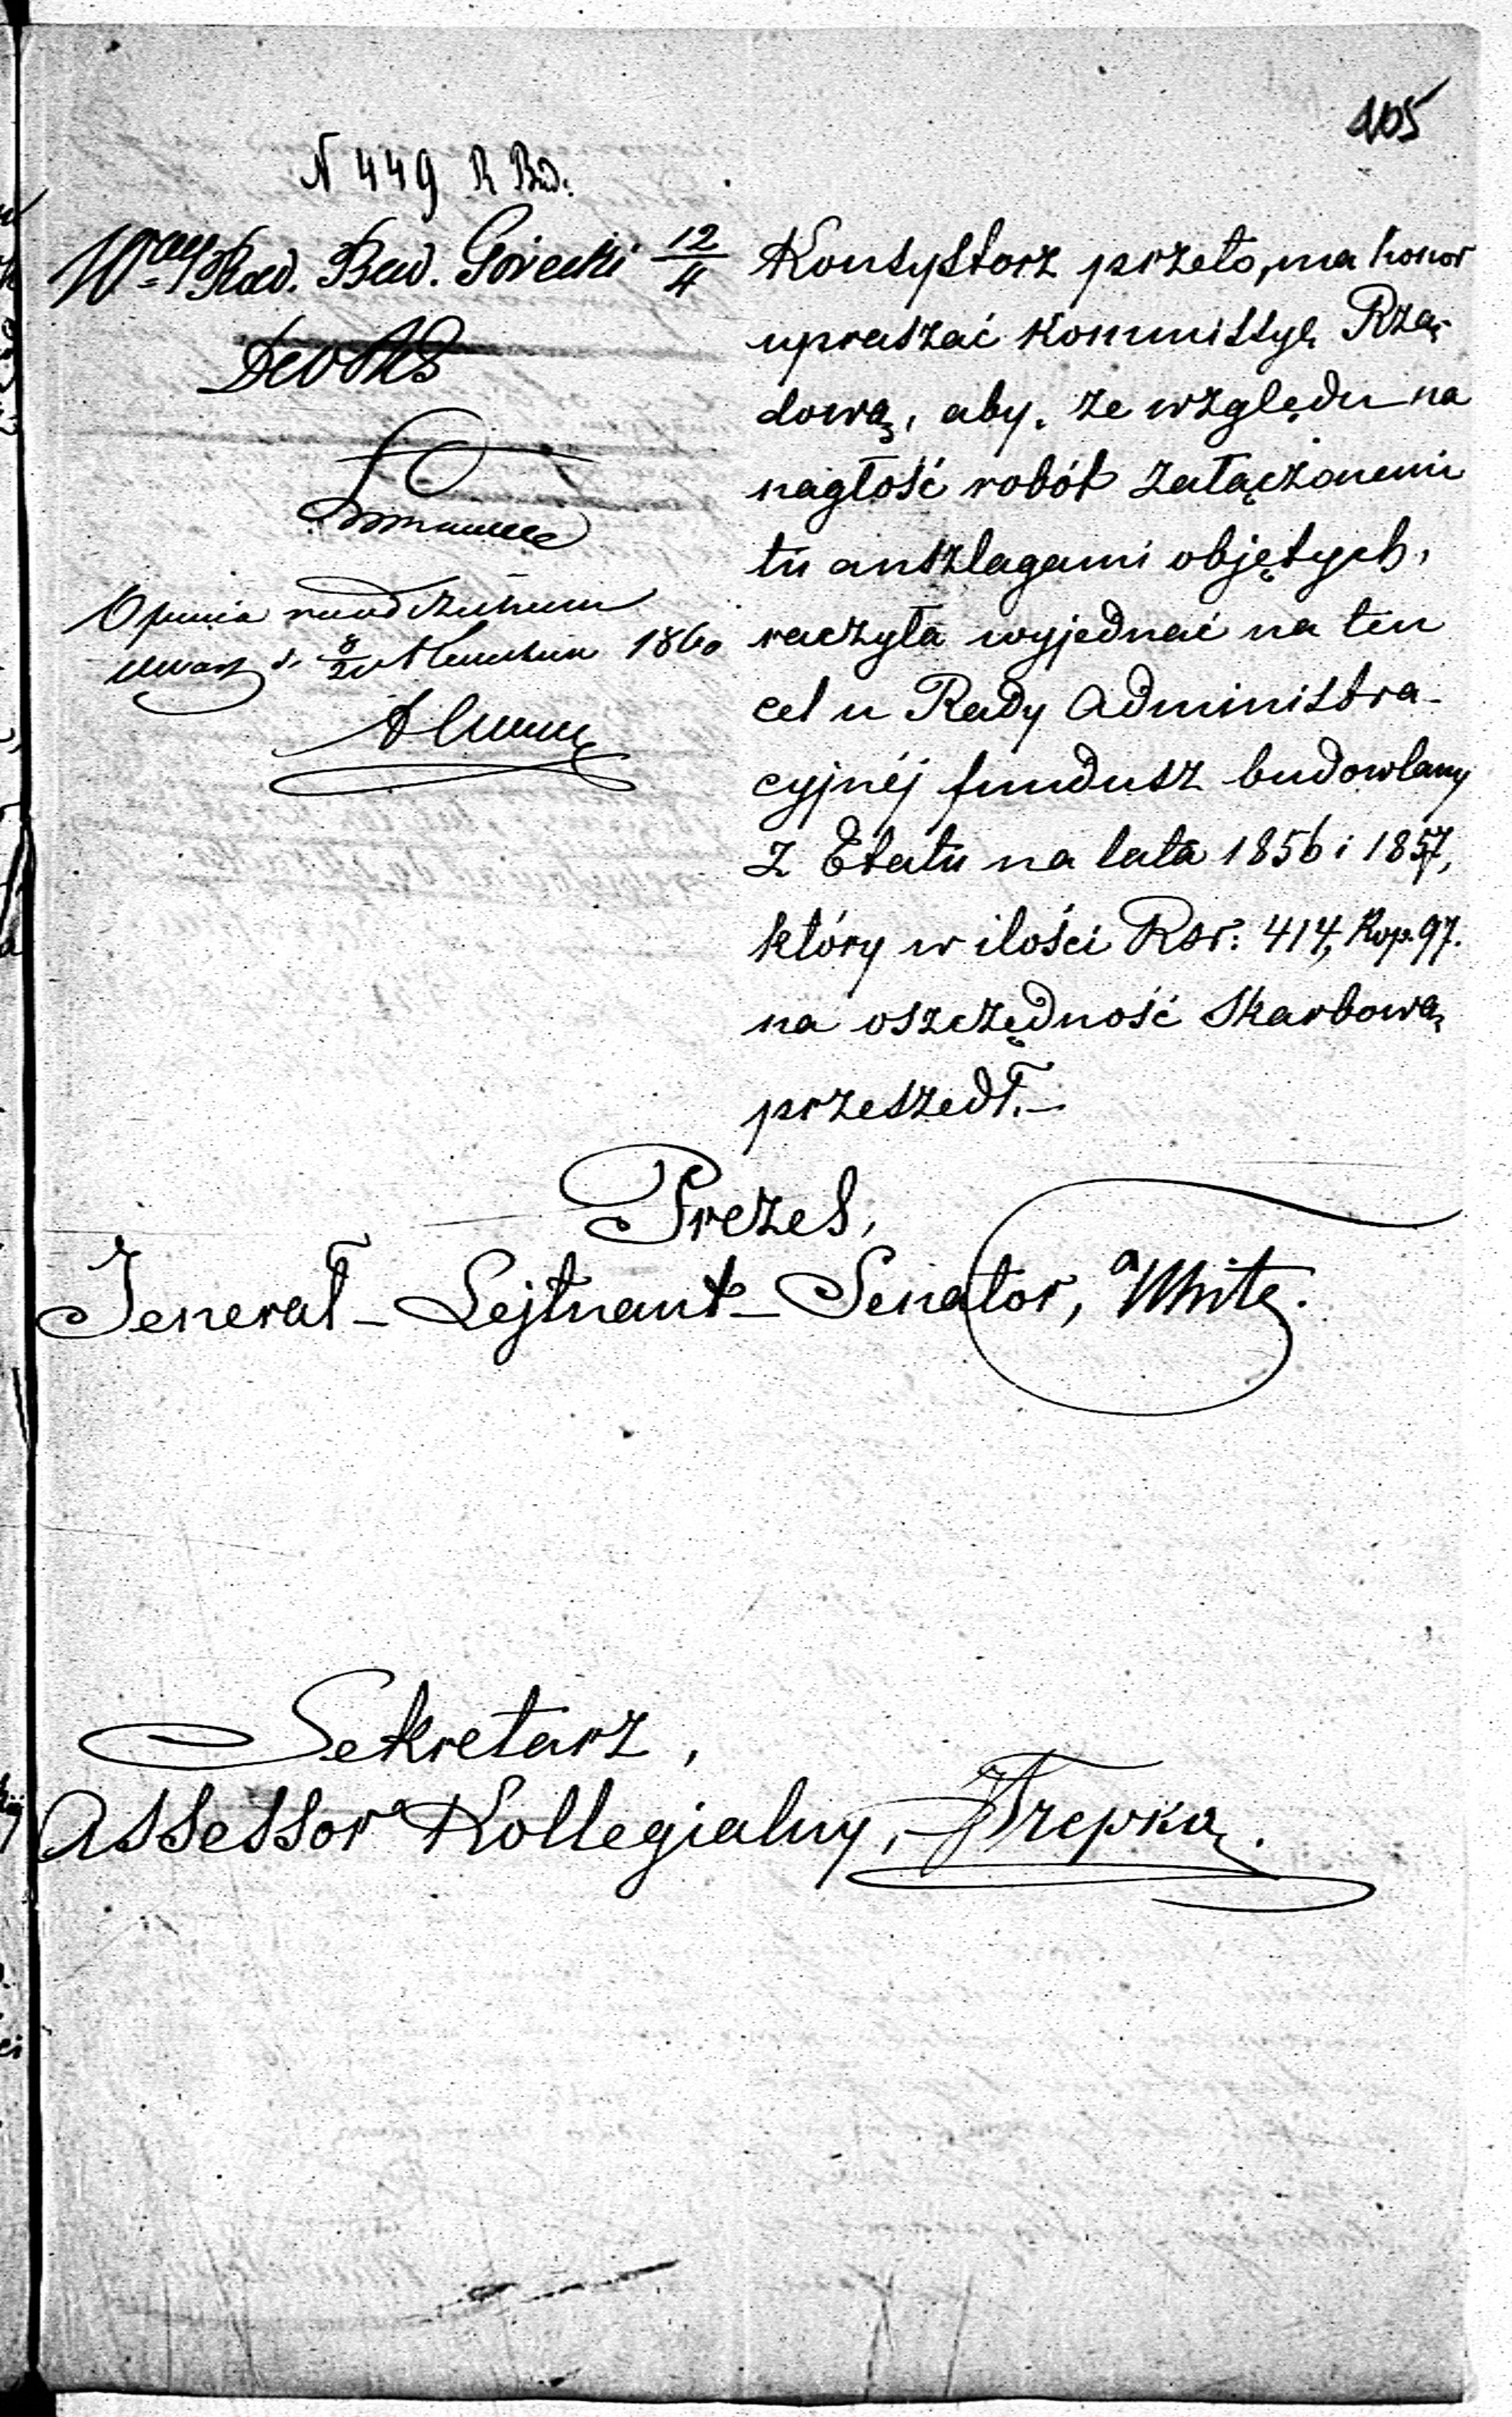 105
N 449 R Bud.
Rad. Bud. Górecki 12/4
Konsystorz przeto, ma honor
upraszać Kommissyę Rzą-
dową, aby, ze względu na
nagłość robót załączonemi
tu anszlagami objętych,
raczyła wyjednać na ten
cel u Rady Administra-
cyjnéj fundusz budowlany
z Etatu na lata 1856 i 1857,
który w ilości Rsr: 414, Kop. 97.
na oszczędność Skarbową
przeszedł.—
Opinia
d. 8/20 1860
Prezes,
Jenerał-Lejtnant-Senator, White.
Sekretarz,
Assessor Kollegialny, Trepka.